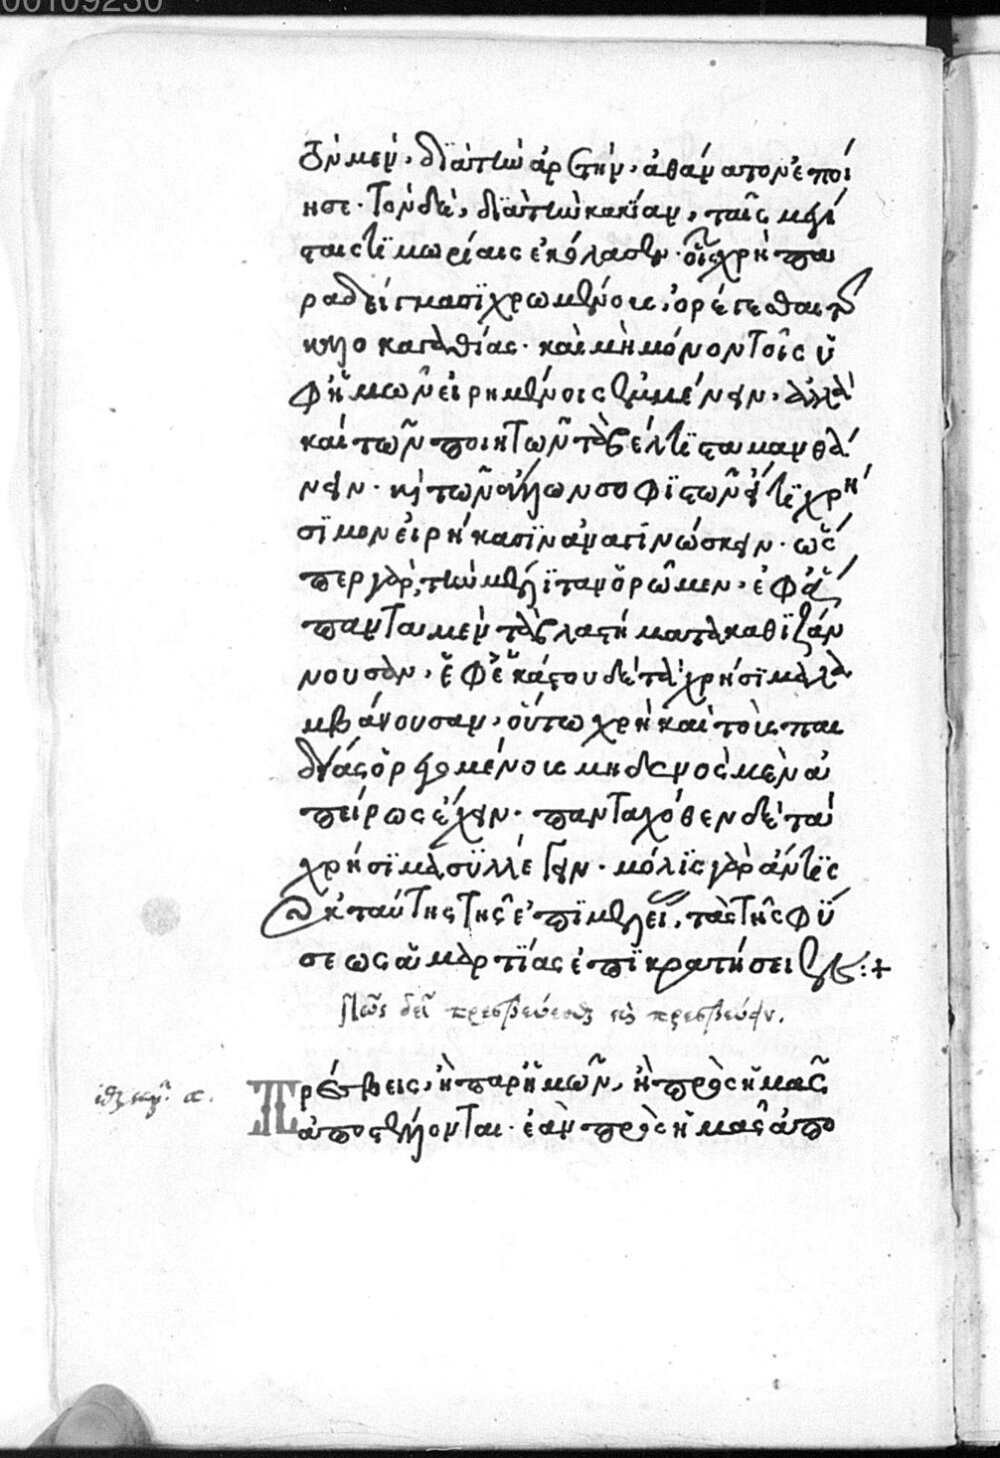 00109230
τὸν μὲν, διὰ τὴν ἀρετὴν, ἀθάνατον ἐποί
ησε· τὸν δὲ, διὰ τὴν κακίαν, ταῖς μεγί
σταις τιμωρίαις ἐκόλασεν· οἷς χρὴ πα
ραδείγμασι χρωμένοις, ὀρέγεσθαι τῆς
καλοκαγαθίας· καὶ μὴ μόνον τοῖς ὑ
φ' ἡμῶν εἰρημένοις ἐμμένειν, ἀλλὰ
καὶ τῶν ποιητῶν τὰ βέλτιστα μανθά
νειν· καὶ τῶν ἄλλων σοφιστῶν εἴ τι χρή
σιμον εἰρήκασιν ἀναγινώσκειν· ὥσ
περ γὰρ τὴν μέλιτταν ὁρῶμεν, ἐφ' ἅ
παντα μὲν τὰ βλαστήματα καθιζάν
νουσαν, ἐφ' ἑκάστου δὲ τὰ χρήσιμα λα
μβάνουσαν, οὕτω χρὴ καὶ τοὺς παι
δείας ὀρεγομένους μηδενὸς μὲν ἀ
πείρως ἔχειν· πανταχόθεν δὲ τὰ
χρήσιμα συλλέγειν· μόλις γὰρ ἄν τις
ἐκ ταύτης τῆς ἐπιμελείας, τὰς τῆς φύ
σεως ἁμαρτίας ἐπικρατήσειεν :+
Πῶς δεῖ πρεσβεύεσθαι καὶ πρεσβεύειν.
Πρέσβεις, ἢ παρ' ἡμῶν, ἢ πρὸς ἡμᾶς
ἀποστέλλονται· ἐὰν πρὸς ἡμᾶς ἀπο